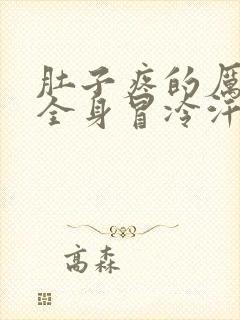 肚子疼的厉
全身冒冷汗
高森